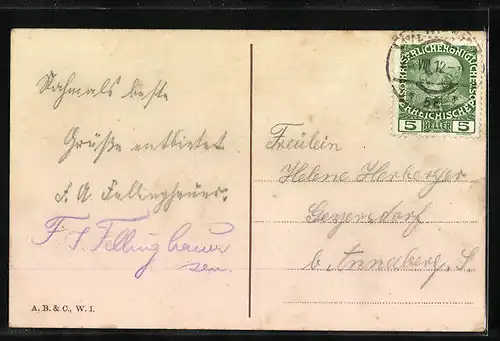 Nochmals beste
Grüße entbietet
F. A. Fellinghauer.
F. A. Fellinghauer
sen.
A. B. & C., W. I.
KAISERLICHE KÖNIGLICHE
ÖSTERREICHISCHE POST
5 HELLER 5
VIII 12
Fräulein
Helene Herberger
Geyersdorf
b. Annaberg, S.